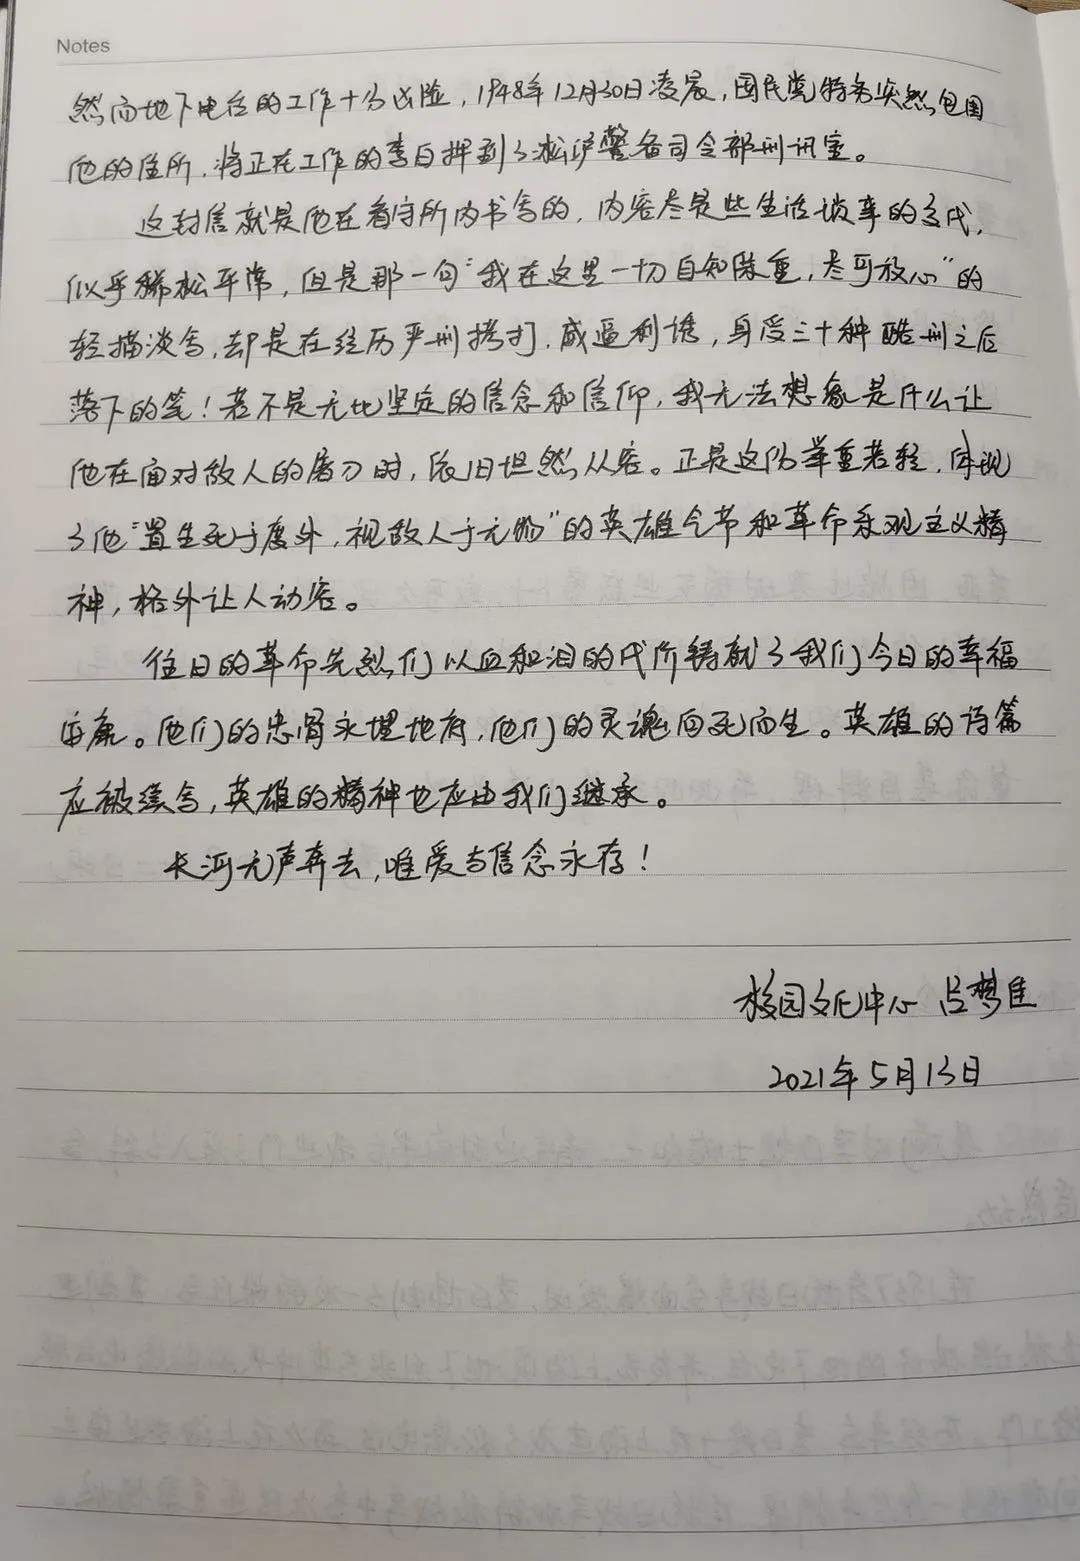 Notes
然而地下电台的工作十分凶险，1948年12月30日凌晨，国民党特务突然包围
他的住所，将正在工作的李白押到了淞沪警备司令部刑讯室。
这封信就是他在看守所内书写的，内容尽是些生活琐事的交代，
似乎稀松平常，但是那一句“我在这里一切自知保重，尽可放心”的
轻描淡写，却是在经历严刑拷打、威逼利诱，身受三十种酷刑之后
落下的笔！若不是无比坚定的信念和信仰，我无法想象是什么让
他在面对敌人的屠刀时，依旧坦然从容。正是这份举重若轻，体现
了他“置生死于度外，视敌人于无物”的英雄气节和革命乐观主义精
神，格外让人动容。
往日的革命先烈们以血和泪的代价铸就了我们今日的幸福
安康。他们的忠骨永埋地府，他们的灵魂向死而生。英雄的诗篇
应被续写，英雄的精神也应由我们继承。
长河无声奔去，唯爱与信念永存！
校园文化中心 吕梦佳
2021年5月13日